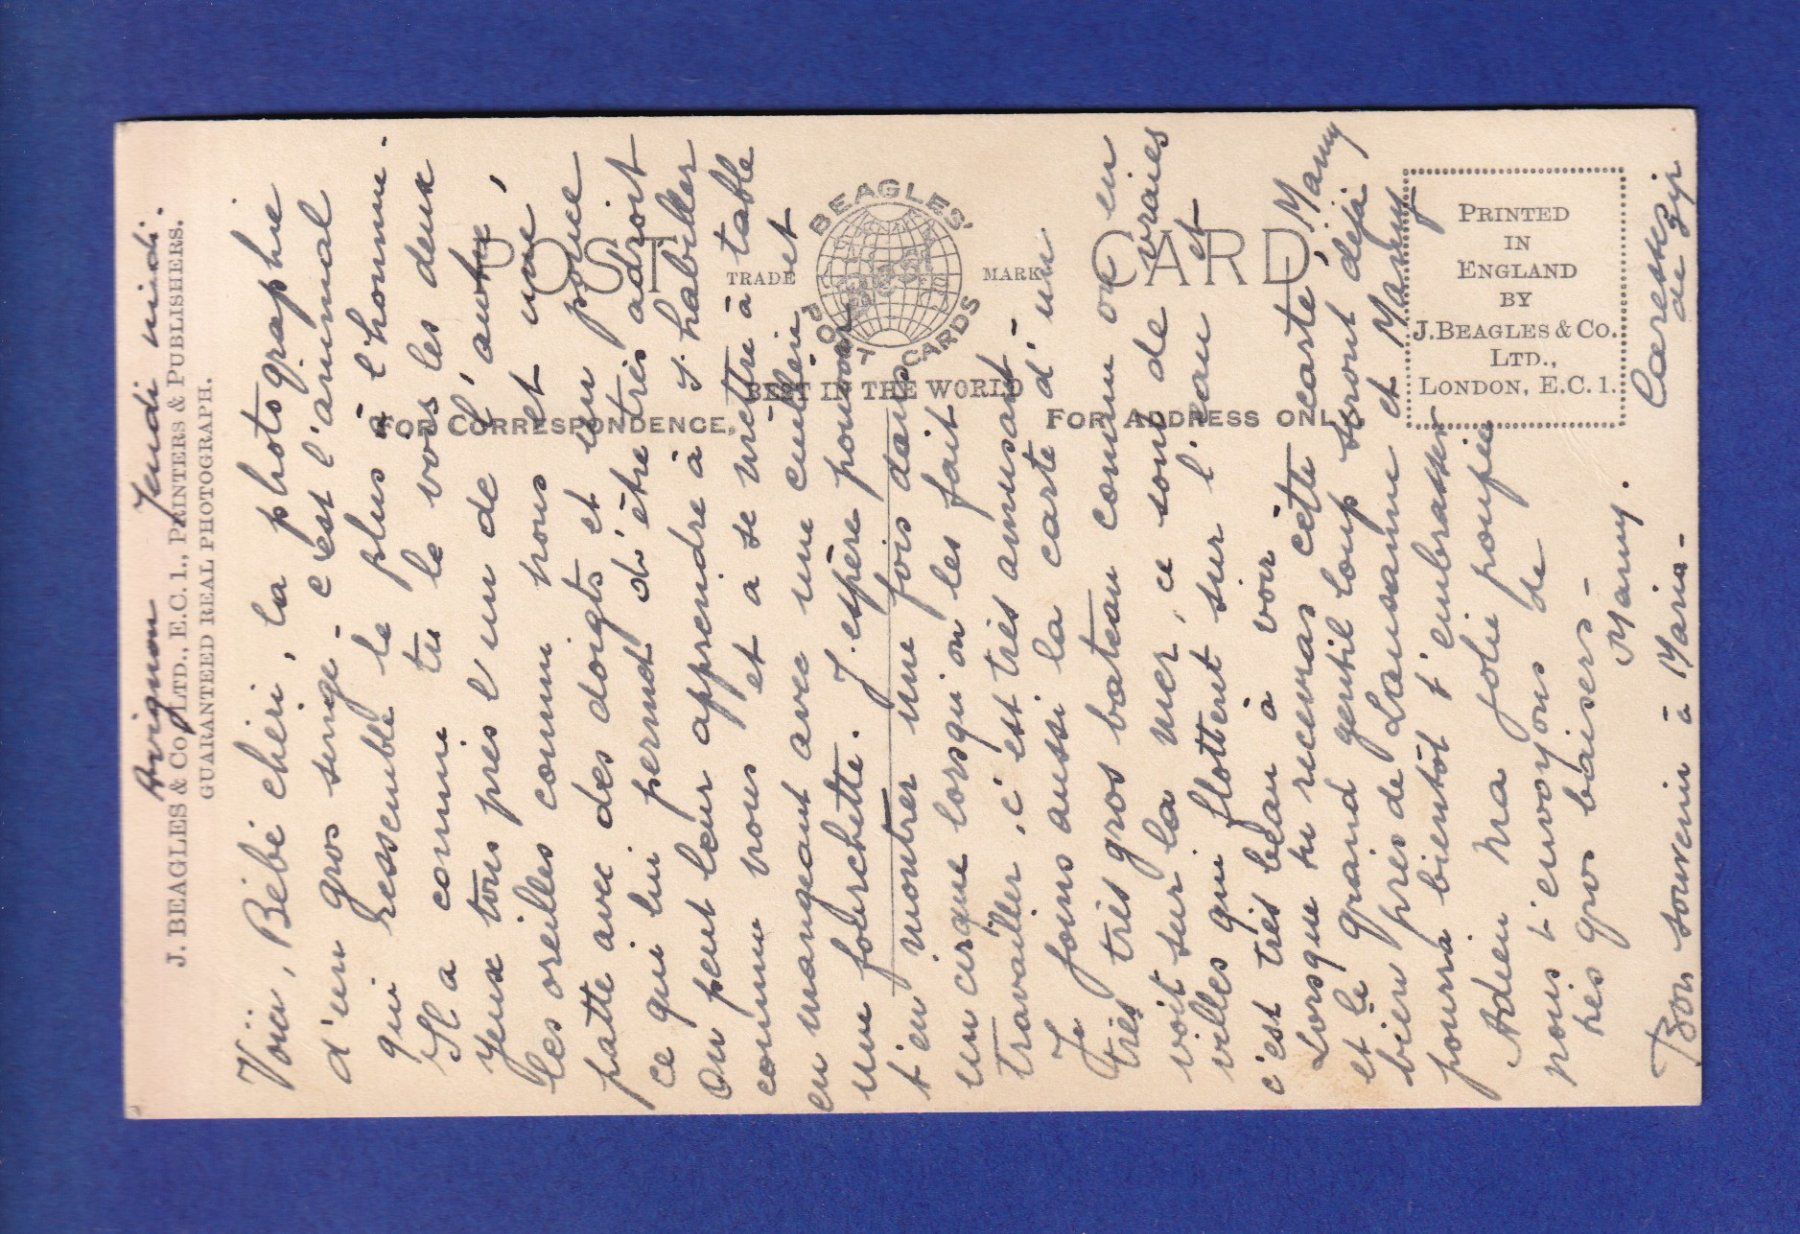 Avignon Jeudi midi.
J. BEAGLES & Co., LTD., E.C. 1., PRINTERS & PUBLISHERS.
GUARANTEED REAL PHOTOGRAPH.
Voici, Bébé chéri, la photographie
d'un gros singe - c'est l'animal
qui ressemble le plus à l'homme -
Il a comme tu le vois les deux
yeux tous près l'un de l'autre,
les oreilles comme nous et une
patte avec des doigts et un pouce
ce qui lui permet d'être très adroit
On peut leur apprendre à s'habiller
comme nous et à se mettre à table
en mangeant avec une cuillère et
une fourchette. J'espère pouvoir
t'en montrer une fois dans
un cirque lorsqu'on les fait
travailler, c'est très amusant -
Je joins aussi la carte d'un
très très gros bateau comme on en
voit sur la mer, ce sont de vraies
villes qui flottent sur l'eau et
c'est très beau à voir -
Lorsque tu recevras cette carte, Mamy
et le grand gentil loup seront déjà
bien près de Lausanne et Mamy
pourra bientôt t'embrasser
Adieu ma jolie poupée
nous t'envoyons de
très gros baisers -
Mamy.
Bon souvenir à Maria -
Caresses
de Zip
POST CARD
BEAGLES'
POST CARDS
TRADE MARK
BEST IN THE WORLD
FOR CORRESPONDENCE,
FOR ADDRESS ONLY
PRINTED
IN
ENGLAND
BY
J. BEAGLES & CO.
LTD.,
LONDON, E.C. 1.